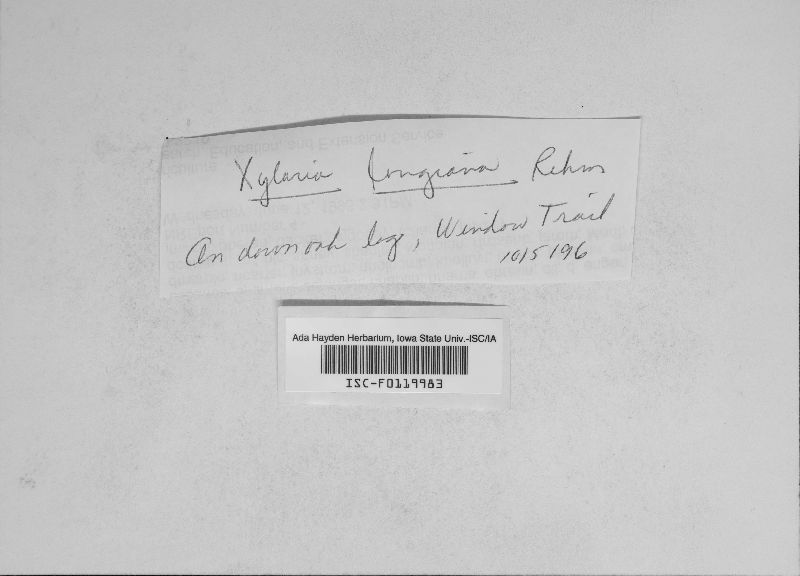 Xylaria longiana Rehm
On down oak log, Window Trail
10/5/96
Ada Hayden Herbarium, Iowa State Univ.-ISC/IA
ISC-F0119983